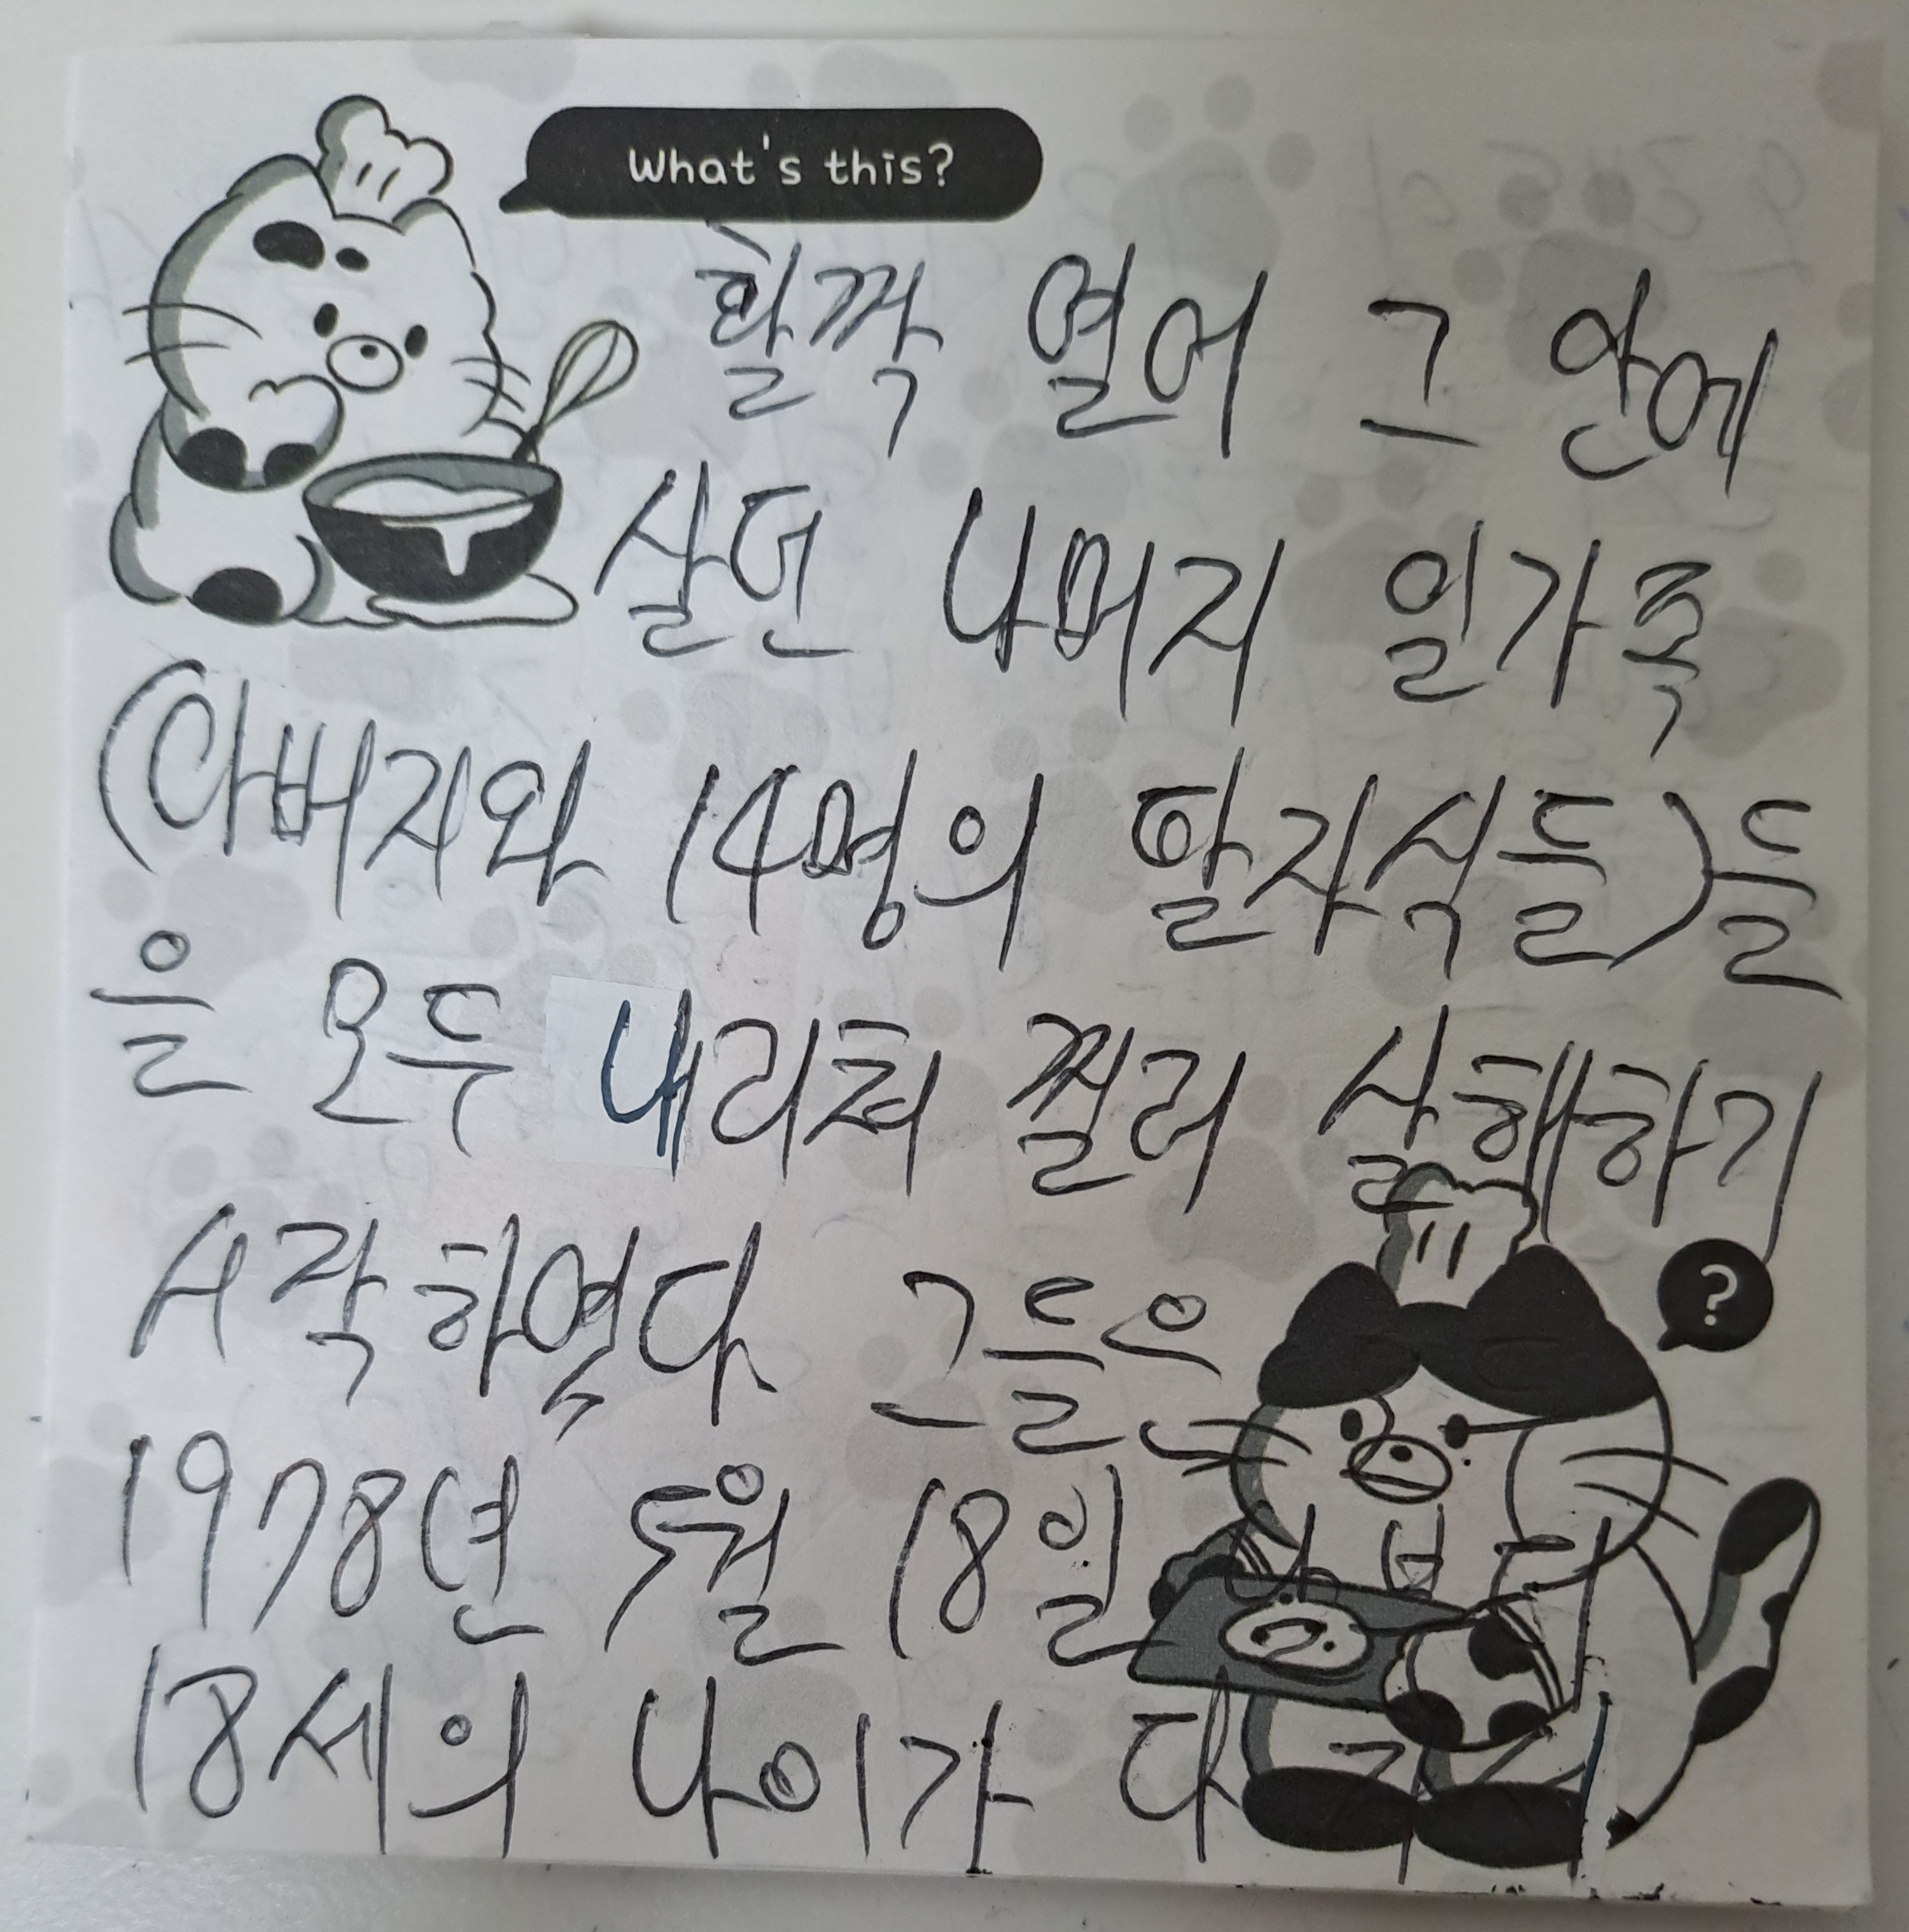 What's this?
활짝 열어 그 안에
살던 나머지 일가족
(아버지와 14명의 딸자식들)들
을 모두 내리쳐 찔러 살해하기
시작하였다. 그들은
?
1978년 5월 18일부터
18세의 나이가